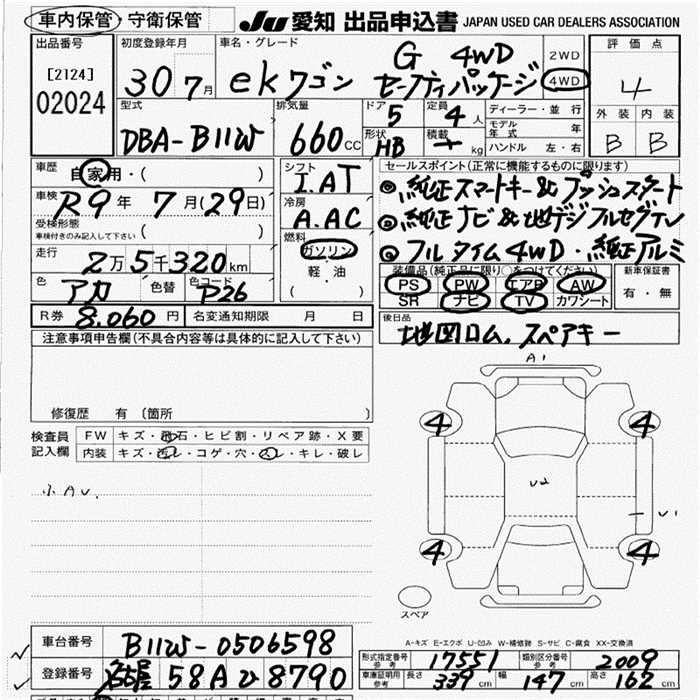 車内保管・守衛保管 JU 愛知 出品申込書 JAPAN USED CAR DEALERS ASSOCIATION
出品番号 初度登録年月 車名・グレード 評価点
[2124] 30 7月 ekワゴン G 4WD 2WD 4
02024 セーフティパッケージ 4WD
型式 排気量 ドア 5 定員 4人 ディーラー・並行 外装 内装
DBA-B11W 660cc 形状 HB 積載 kg モデル年式 年 B B
ハンドル 左・右
車歴 自家用・( ) シフト I.AT セールスポイント(正常に機能するものに限ります)
車検 R9年 7月(29日) 冷房 A.AC ◎純正スマートキー&プッシュスタート
受検形態 ( ) ◎純正ナビ&地デジフルセグTV
車検付きのみ記入して下さい 燃料 ◎フルタイム4WD・純正アルミ
走行 2万5千320km ガソリン 装備品(純正品に限り○をつけてください) 新車保証書
色 アカ 色替 色コード P26 軽・油 PS PW エアB AW 有・無
( ) SR ナビ TV カワシート
R券 8,060円 名変通知期限 月 日 後日品
注意事項申告欄(不具合内容等は具体的に記入して下さい) 地図ロム,スペアキー
A1
修復歴 有〔箇所 〕
検査員 FW キズ・飛石・ヒビ割・リペア跡・X要
記入欄 内装 キズ・汚レ・コゲ・穴・スレ・キレ・破レ
4 4
U2
U1
4 4
スペア
A-キズ E-エクボ U-凹み W-補修跡 S-サビ C-腐食 XX-交換済
車台番号 B11W-0506598
形式指定番号 参考 17551 類別区分番号 参考 2009
登録番号 名古屋 58A ひ 8790
車庫証明用 参考 長さ 339cm 幅 147cm 高さ 162cm